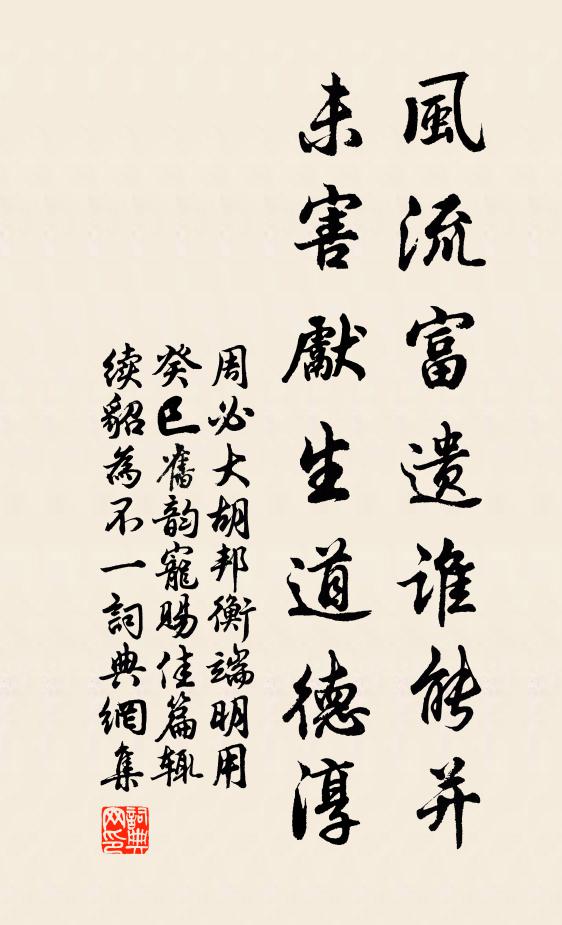 風流富遗谁能并
未害獻生道德淳
周必大胡邦衡端明用
癸巳舊韵寵賜佳篇辄
续貂為不一詞典網集
詞典网印